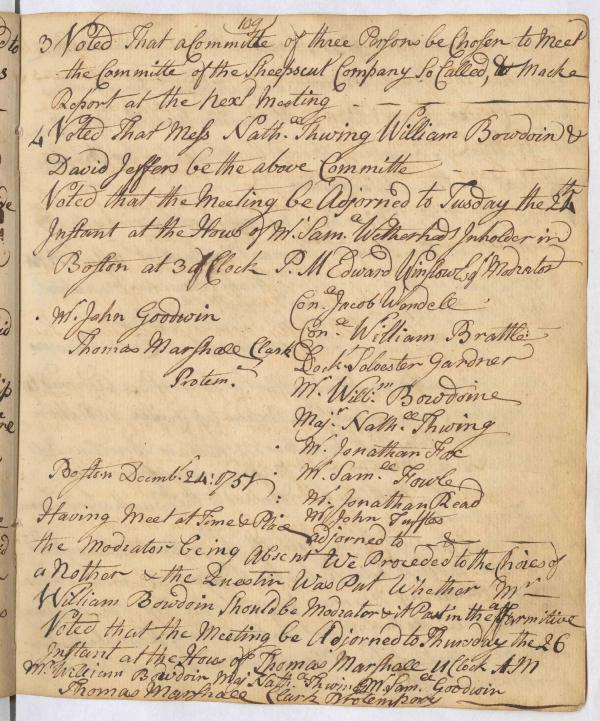 109
3 Voted That a Committe of three Persons be Chosen to Meet
the Committe of the Sheepscut Company So Called, & Macke
Report at the Next Meeting
4 Voted That Mess Nath.ll Thwing William Bowdoin &
David Jeffers be the above Committe
Voted that the Meeting be Adjorned to Tusday the 24th
Instant at the Hous of Mr. Sam.ll Wetherheds Inholder in
Boston at 3 of Clock P. M Edward Winslow Esqr Modrator
Con.ll Jacob Wendell
Mr. John Goodwin
Con.ll William Brattle
Thomas Marshall Clark
Protem.
Dock Silvester Gardner
Mr. Will.m Bowdoine
Majr. Nath.ll Thwing
Mr. Jonathan Fox
Mr. Sam.ll Fowle
Boston Decemb. 24: 1751
Mr. Jonathan Read
Mr. John Tuffts
Having Meet at Time & Place adjorned to &
the Modrator being Absent We Proceded to the Choies of
a Nother & the Questin Was Put Whether Mr
William Bowdoin Should be Modrator & it Past in the affarmitive
Voted that the Meeting be Adjorned to Thursday the 26
Instant at the Hous of Thomas Marshall 11 Clock AM
Mr. William Bowdoin Maj Nath.ll Thwing Mr. Sam.ll Goodwin
Thomas Marshall Clark Protempory